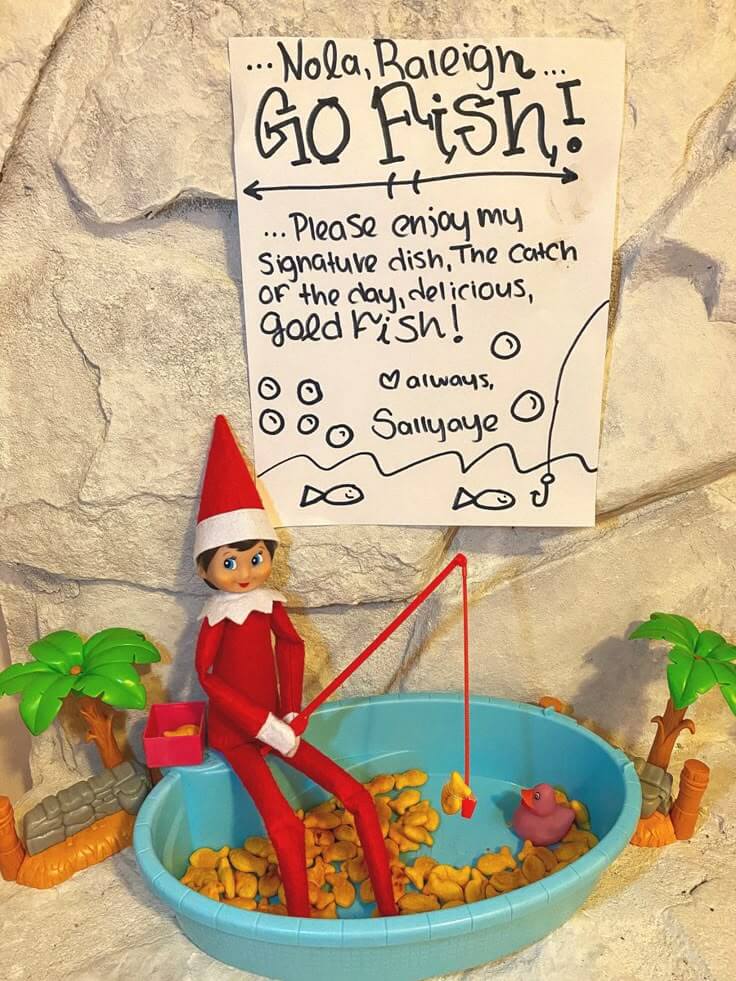 ...Nola, Raleigh...
GO FiSH!
...Please enjoy my
signature dish, The catch
of the day, delicious,
goldFish!
♡ always,
Sallyaye